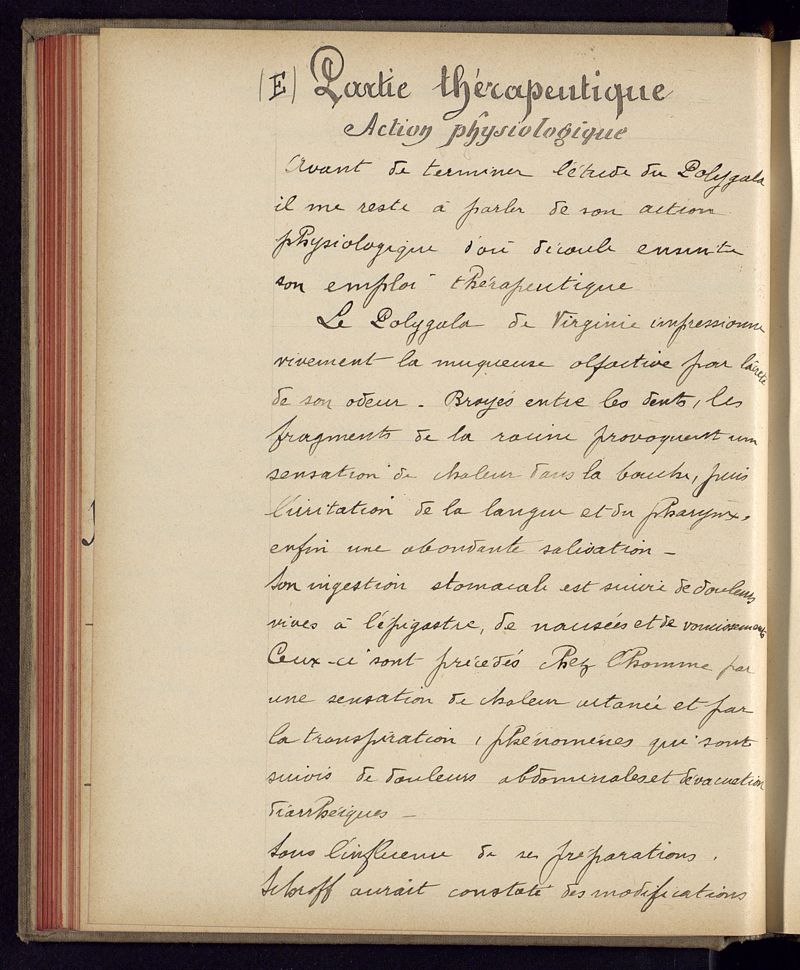 (E) Partie thérapeutique
Action physiologique
Avant de terminer l'étude du Polygala
il me reste à parler de son action
physiologique d'où découle ensuite
son emploi thérapeutique
Le Polygala de Virginie impressionne
vivement la muqueuse olfactive par l'âcreté
de son odeur. Broyés entre les dents, les
fragments de la racine provoquent une
sensation de chaleur dans la bouche, puis
l'irritation de la langue et du pharynx,
enfin une abondante salivation —
Son ingestion stomacale est suivie de douleurs
vives à l'épigastre, de nausées et de vomissements
Ceux-ci sont précédés chez l'homme par
une sensation de chaleur cutanée et par
la transpiration, phénomènes qui sont
suivis de douleurs abdominales et d'évacuation
diarrhéiques —
Sous l'influence de ses préparations.
Schroff aurait constaté des modifications